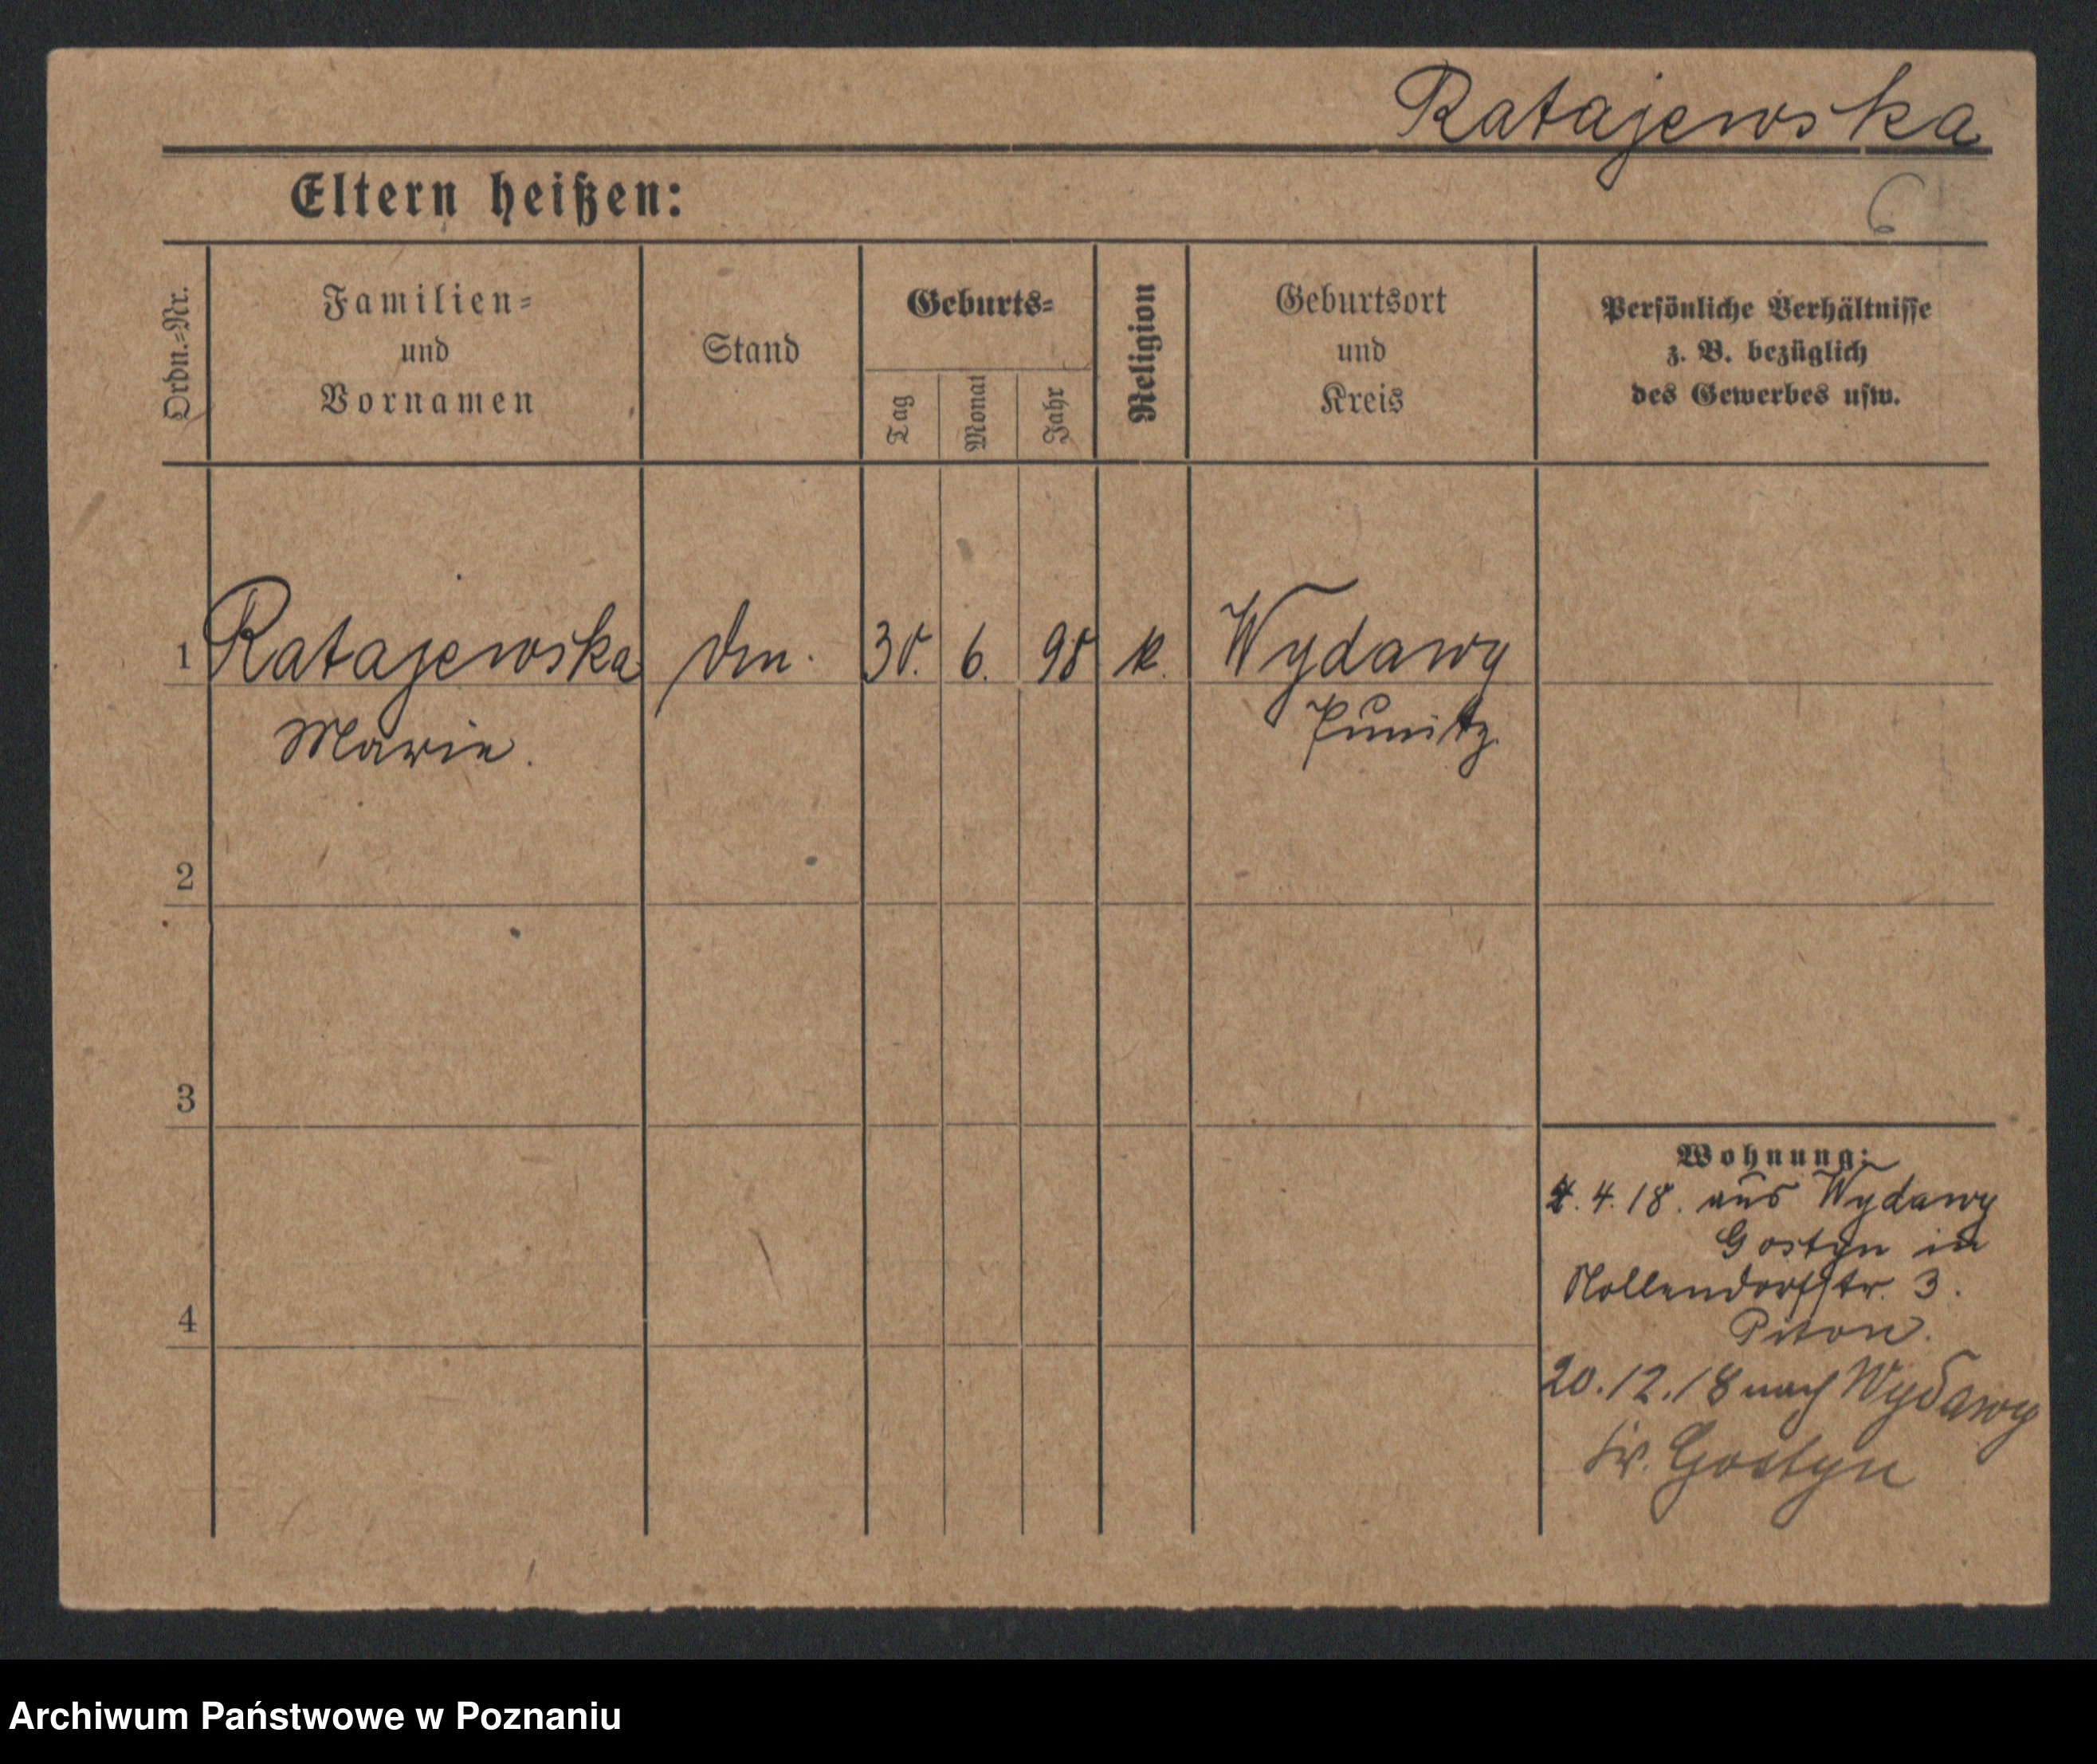 Ratajewska
6
Eltern heißen:
Ordn.-Nr.
Familien-
und
Vornamen
Stand
Geburts-
Tag
Monat
Jahr
Religion
Geburtsort
und
Kreis
Persönliche Verhältnisse
z. B. bezüglich
des Gewerbes usw.
1 Ratajewska 30. 6. 98 k. Wydawy
Marie. Punitz.
2
3
4
Wohnung:
4. 18. aus Wydawy
Gostyn in
Nollendorfstr. 3.
20.12.18 nach Wydawy
Kr. Gostyn
Archiwum Państwowe w Poznaniu